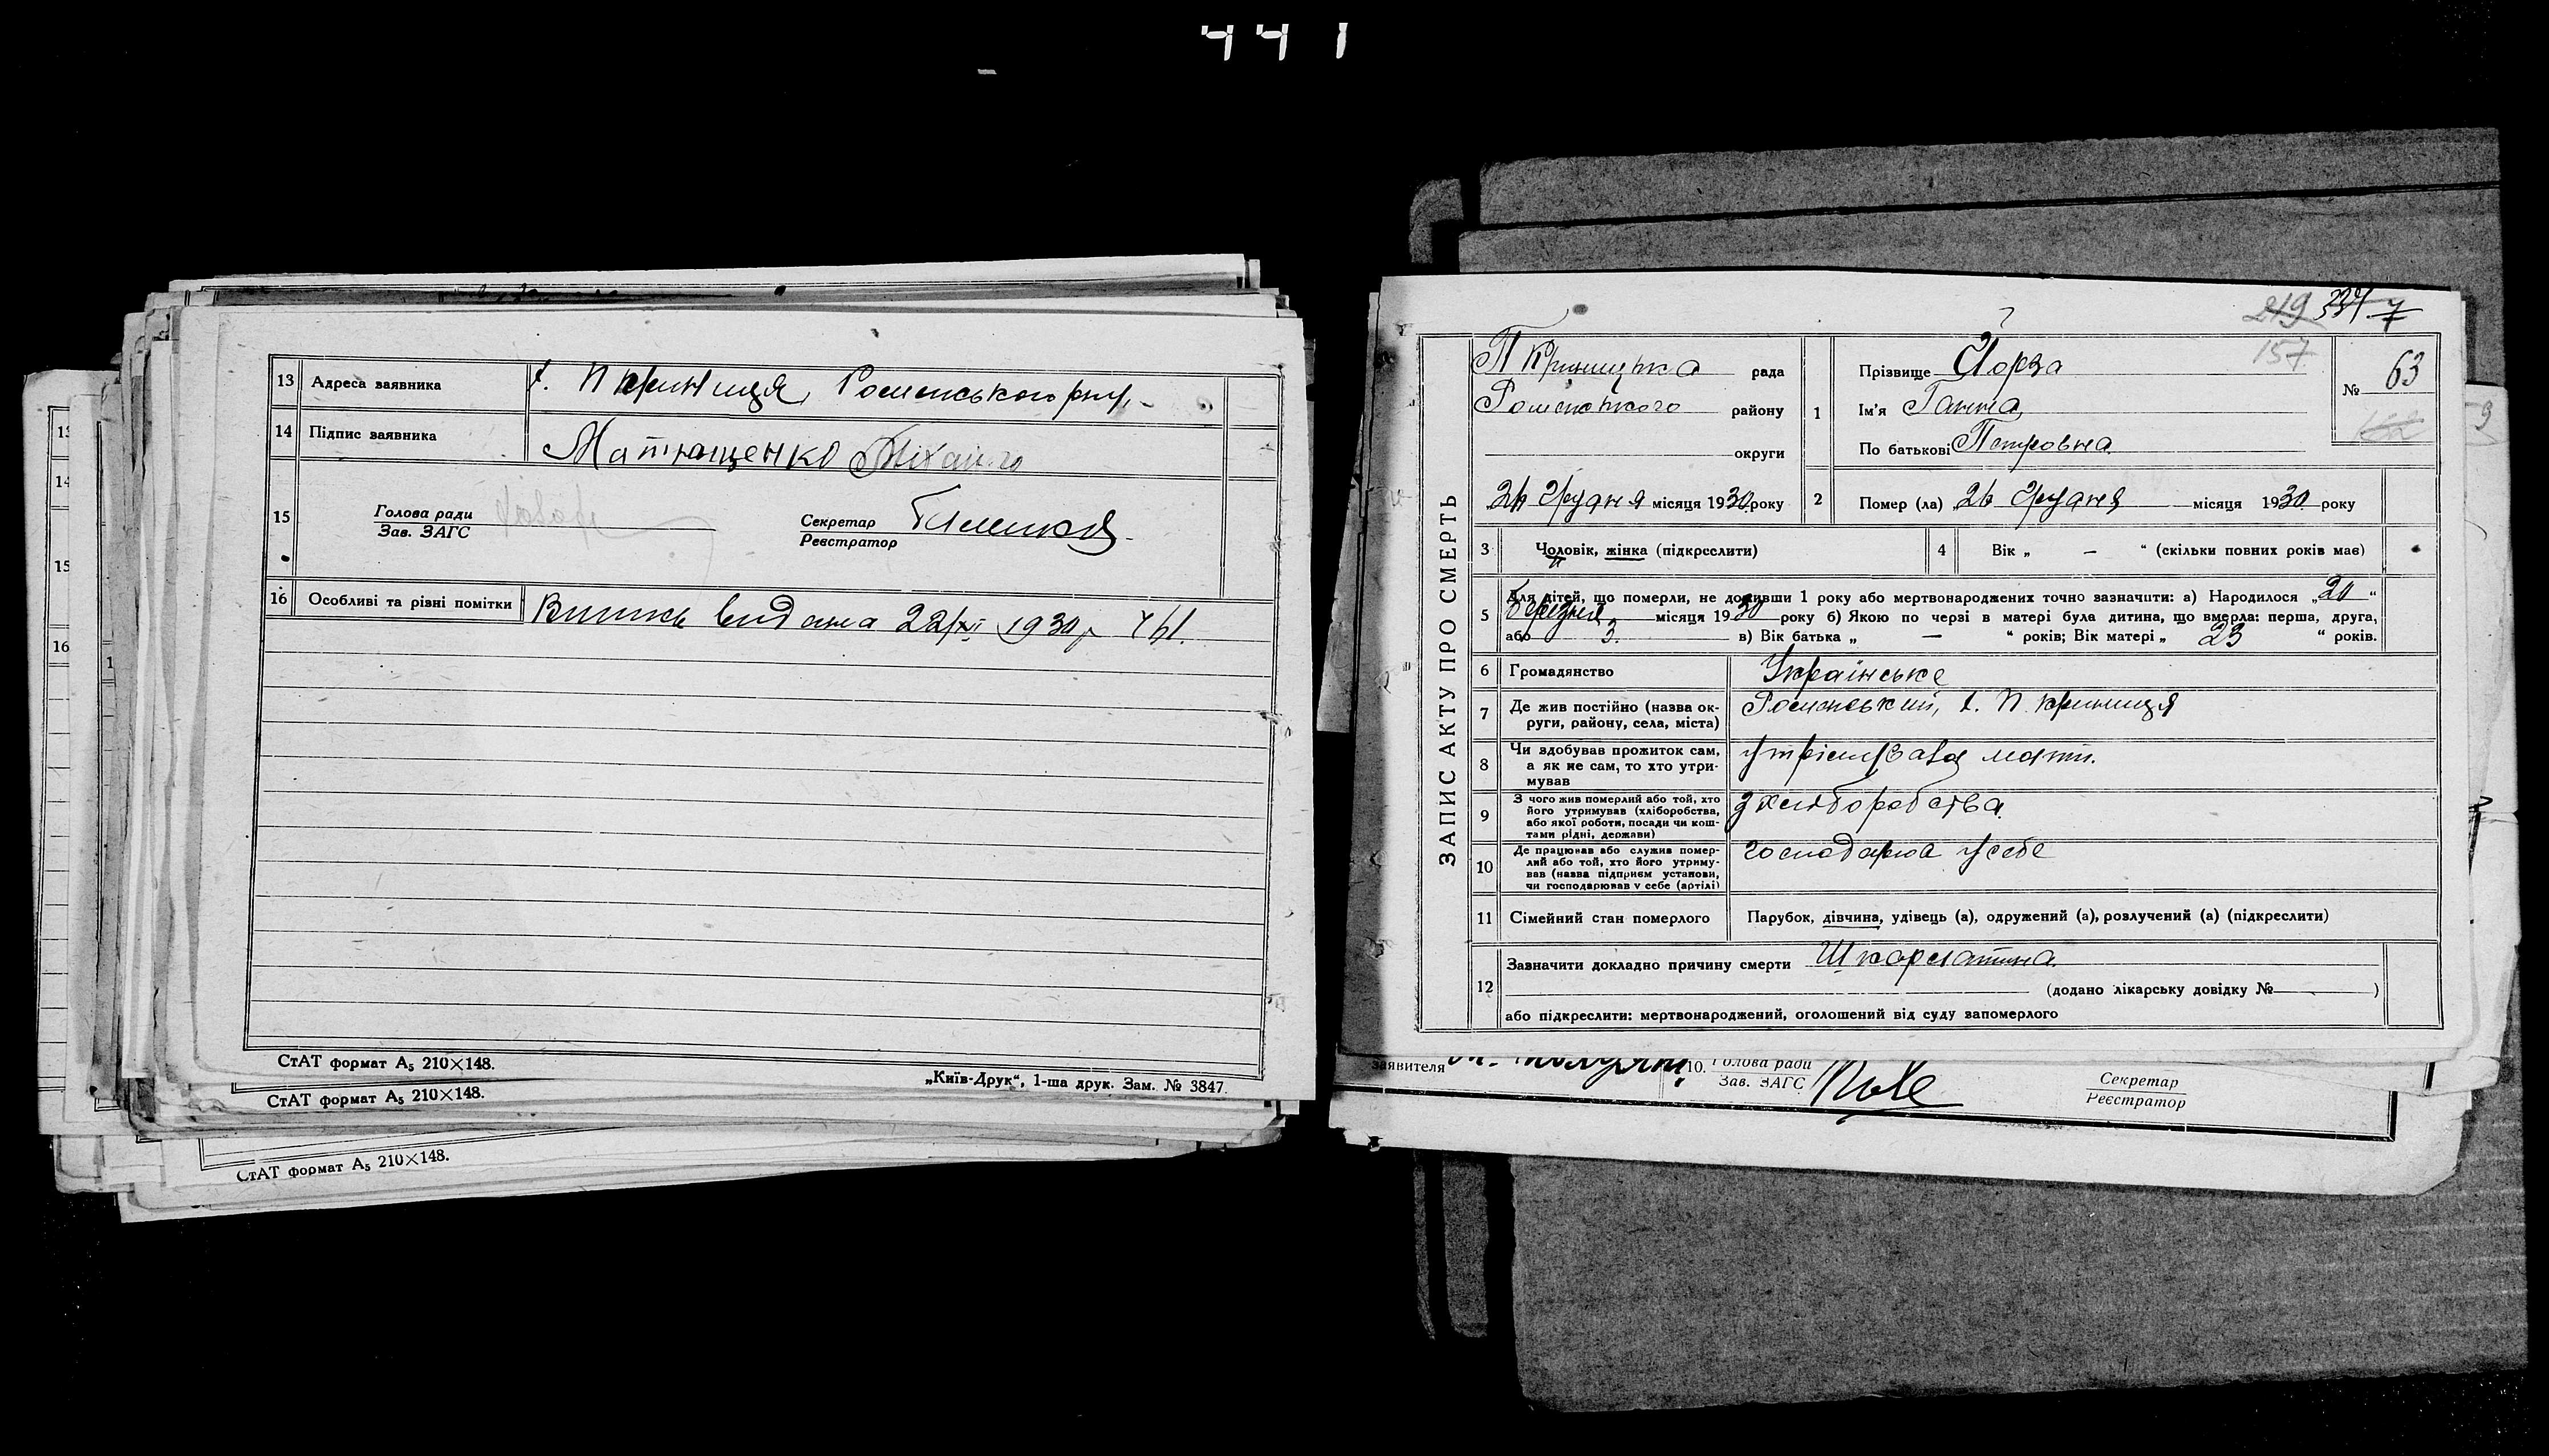 441
13 Адреса заявника с. П Криниця, Роменського рну,
14 Підпис заявника Матющенко Михайло
15 Голова ради
Зав. ЗАГС
Секретар
Реєстратор
16 Особливі та різні помітки Випись видана 22/XI 1930 р
СтАТ формат А₅ 210×148.
„Київ-Друк“, 1-ша друк. Зам. № 3847.
СтАТ формат А₅ 210×148.
СтАТ формат А₅ 210×148.
13
14
15
16
219
157
ЗАПИС АКТУ ПРО СМЕРТЬ
П Криницька рада
Роменського району
округи
26 Грудня місяця 1930 року
1 Прізвище Йорза
Ім'я Ганна
По батькові Петровна
№ 63
2 Помер (ла) 26 Грудня місяця 1930 року
3 Чоловік, жінка (підкреслити)
4 Вік „ — “ (скільки повних років має)
5 Для дітей, що померли, не доживши 1 року або мертвонароджених точно зазначити: а) Народилося „20“
березня місяця 1930 року б) Якою по черзі в матері була дитина, що вмерла: перша, друга,
або 3. в) Вік батька „ — “ років; Вік матері „ 23 “ років.
6 Громадянство Українське
7 Де жив постійно (назва ок-
руги, району, села, міста) Роменський, с. П. Криниця
8 Чи вдобував прожиток сам,
а як не сам, то хто утри-
мував утримувала мати.
9 З чого жив померлий або той, хто
його утримував (хліборобства,
або якої роботи, посади чи кош-
тами рідні, держави) з хліборобства
10 Де працював або служив помер-
лий або той, хто його утриму-
вав (назва підприєм установи,
чи господарював у себе (артілі) господарка у себе
11 Сімейний стан померлого Парубок, дівчина, удівець (а), одружений (а), розлучений (а) (підкреслити)
12 Зазначити докладно причину смерти Шкарлатина.
(додано лікарську довідку № )
або підкреслити: мертвонароджений, оголошений від суду запомерлого
заявителя
10. Голова ради
Зав. ЗАГС
Секретар
Реєстратор